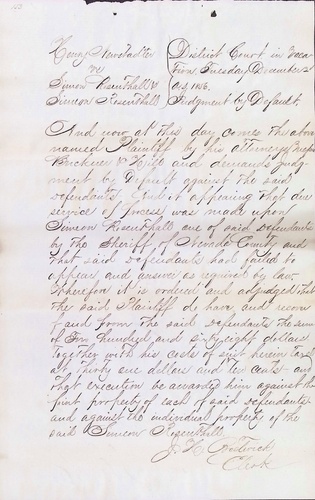 Henry Newstadter
vs
Simeon Risenthall &
Simeon Rosenthall
District Court in Vaca
tion Tuesday December 2d
A.D. 1856.
Judgment by Default.
And now at this day comes the above
named Plaintiff by his attorneys
and demands judg
ment by Default against the said
defendants. And it appearing that due
service of process was made upon
Simeon Risenthall one of said defendants
by the Sheriff of Nevada County and
that said defendants had failed to
appear and answer as required by law
Wherefore it is ordered and adjudged that
the said Plaintiff do have and recov
of and from the said defendants the sum
of hundred and sixty eight dollars
together with his costs of suit herein tax
at thirty one dollars and ten cents and
that execution be awarded him against the
joint property of each of said defendants
and against the individual property of the
said Simeon Rosenthall.
Clerk